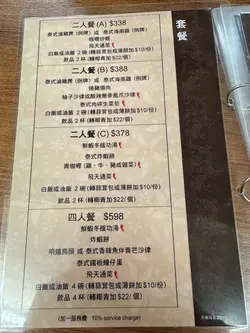 套餐
二人餐 (A) $338
泰式油雞髀 (例牌) 或 泰式海南雞 (例牌)
咖喱炒蝦
飛天通菜
白飯或油飯 2 碗 (轉蒜茸包或薄餅加$10/份)
飲品 2 杯 (轉椰青加$22/個)
二人餐 (B) $388
泰式油雞髀 (例牌) 或 泰式海南雞 (例牌)
燒豬頸肉
柚子沙律或酸辣無骨鳳爪沙律
泰式肉碎生菜包
白飯或油飯 2 碗 (轉蒜茸包或薄餅加$10/份)
飲品 2 杯 (轉椰青加$22/個)
二人餐 (C) $378
鮮蝦冬蔭功湯
泰式炸蝦餅
青咖喱 (雞、牛、豬或雜菜)
飛天通菜
白飯或油飯 2 碗 (轉蒜茸包或薄餅加$10/份)
飲品 2 杯 (轉椰青加$22/個)
四人餐 $598
鮮蝦冬蔭功湯
炸蝦餅
明爐烏頭 或 泰式香辣魚伴青芒沙律
泰式鐵板蠔仔蛋
飛天通菜
白飯或油飯 4 碗 (轉蒜茸包或薄餅加$10/份)
飲品 4 杯 (轉椰青加$22/個)
(加一服務費 10% service charge)